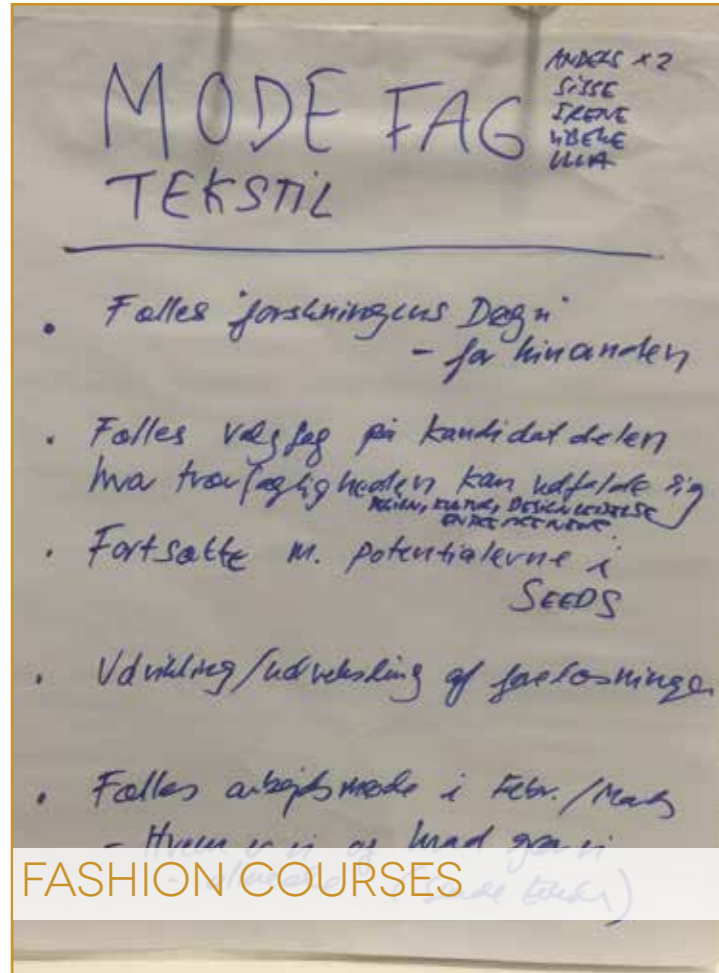 MODE FAG
TEKSTIL
ANDERS x2
SISSE
IRENE
VIBEKE
ULLA
• Fælles "forskningens Døgn"
- for hinanden
• Fælles valgfag på kandidatdelen
hvor tværfagligheden kan udfolde sig
KULTUR, DESIGN LEDELSE
• Fortsætte m. potentialerne i
SEEDS
• Udvikling/udveksling af forelæsninger
• Fælles arbejdsmøde i Febr./Marts
- Hvem er vi og hvad gør vi
FASHION COURSES